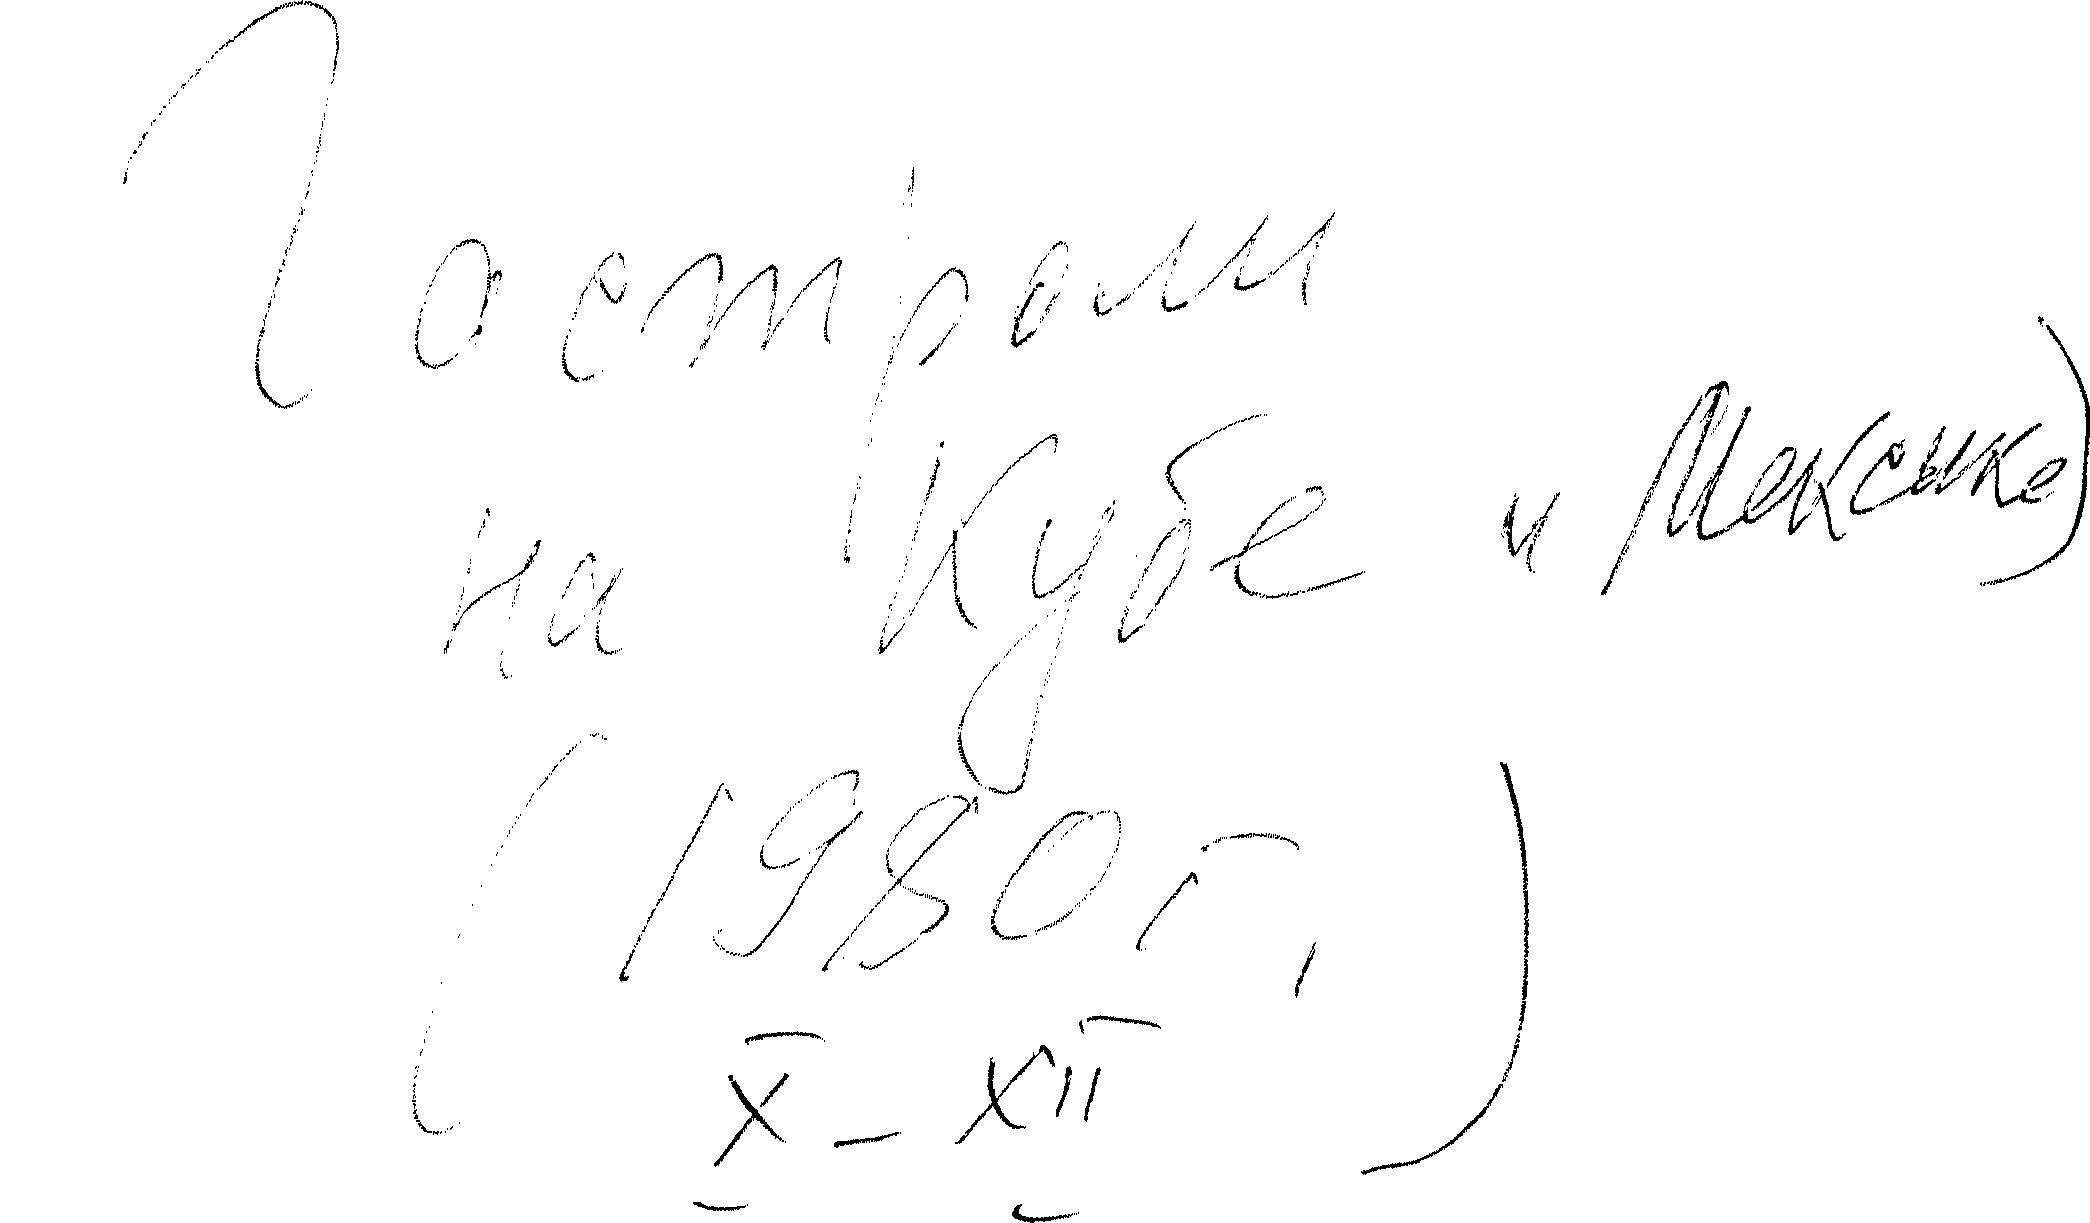 Гастроли
на Кубе и Мексике)
(1980 г.
X – XII)